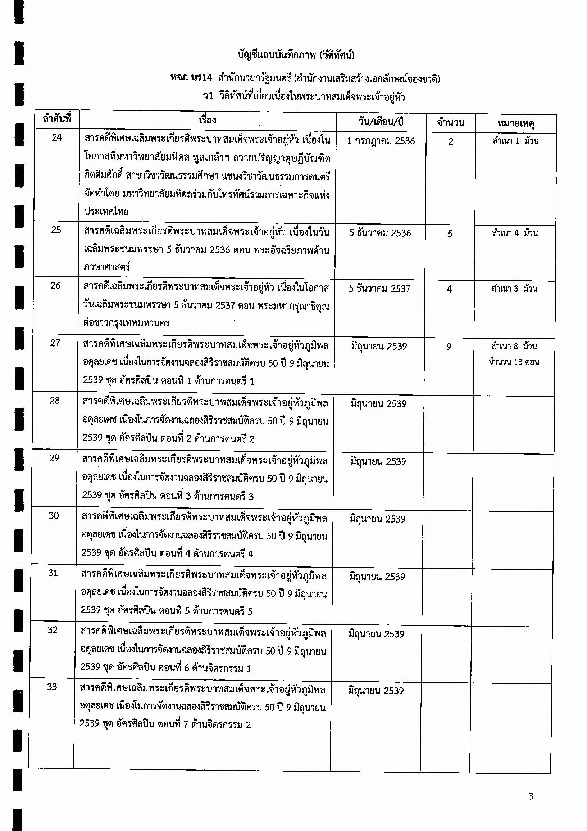 บัญชีแถบบันทึกภาพ (วีดิทัศน์)
หจภ. นร14 สำนักนายกรัฐมนตรี (สำนักงานเสริมสร้างเอกลักษณ์ของชาติ)
ว1 วีดิทัศน์ที่เกี่ยวเนื่องในพระบาทสมเด็จพระเจ้าอยู่หัว
ลำดับที่ เรื่อง วัน/เดือน/ปี จำนวน หมายเหตุ
24 สารคดีพิเศษเฉลิมพระเกียรติพระบาทสมเด็จพระเจ้าอยู่หัว เนื่องใน 1 กรกฎาคม 2536 2 สำเนา 1 ม้วน
โอกาสที่มหาวิทยาลัยมหิดล ทูลเกล้าฯ ถวายปริญญาดุษฎีบัณฑิต
กิตติมศักดิ์ สาขาวิชาวัฒนธรรมศึกษา แขนงวิชาวัฒนธรรมการดนตรี
จัดทำโดย มหาวิทยาลัยมหิดลร่วมกับโทรทัศน์รวมการเฉพาะกิจแห่ง
ประเทศไทย
25 สารคดีเฉลิมพระเกียรติพระบาทสมเด็จพระเจ้าอยู่หัว เนื่องในวัน 5 ธันวาคม 2536 5 สำเนา 4 ม้วน
เฉลิมพระชนมพรรษา 5 ธันวาคม 2536 ตอน พระอัจฉริยภาพด้าน
ภาษาศาสตร์
26 สารคดีเฉลิมพระเกียรติพระบาทสมเด็จพระเจ้าอยู่หัว เนื่องในโอกาส 5 ธันวาคม 2537 4 สำเนา 3 ม้วน
วันเฉลิมพระชนมพรรษา 5 ธันวาคม 2537 ตอน พระมหากรุณาธิคุณ
ต่อชาวกรุงเทพมหานคร
27 สารคดีพิเศษเฉลิมพระเกียรติพระบาทสมเด็จพระเจ้าอยู่หัวภูมิพล มิถุนายน 2539 9 สำเนา 8 ม้วน
อดุลยเดช เนื่องในการจัดงานฉลองสิริราชสมบัติครบ 50 ปี 9 มิถุนายน จำนวน 13 ตอน
2539 ชุด อัครศิลปิน ตอนที่ 1 ด้านการดนตรี 1
28 สารคดีพิเศษเฉลิมพระเกียรติพระบาทสมเด็จพระเจ้าอยู่หัวภูมิพล มิถุนายน 2539
อดุลยเดช เนื่องในการจัดงานฉลองสิริราชสมบัติครบ 50 ปี 9 มิถุนายน
2539 ชุด อัครศิลปิน ตอนที่ 2 ด้านการดนตรี 2
29 สารคดีพิเศษเฉลิมพระเกียรติพระบาทสมเด็จพระเจ้าอยู่หัวภูมิพล มิถุนายน 2539
อดุลยเดช เนื่องในการจัดงานฉลองสิริราชสมบัติครบ 50 ปี 9 มิถุนายน
2539 ชุด อัครศิลปิน ตอนที่ 3 ด้านการดนตรี 3
30 สารคดีพิเศษเฉลิมพระเกียรติพระบาทสมเด็จพระเจ้าอยู่หัวภูมิพล มิถุนายน 2539
อดุลยเดช เนื่องในการจัดงานฉลองสิริราชสมบัติครบ 50 ปี 9 มิถุนายน
2539 ชุด อัครศิลปิน ตอนที่ 4 ด้านการดนตรี 4
31 สารคดีพิเศษเฉลิมพระเกียรติพระบาทสมเด็จพระเจ้าอยู่หัวภูมิพล มิถุนายน 2539
อดุลยเดช เนื่องในการจัดงานฉลองสิริราชสมบัติครบ 50 ปี 9 มิถุนายน
2539 ชุด อัครศิลปิน ตอนที่ 5 ด้านการดนตรี 5
32 สารคดีพิเศษเฉลิมพระเกียรติพระบาทสมเด็จพระเจ้าอยู่หัวภูมิพล มิถุนายน 2539
อดุลยเดช เนื่องในการจัดงานฉลองสิริราชสมบัติครบ 50 ปี 9 มิถุนายน
2539 ชุด อัครศิลปิน ตอนที่ 6 ด้านจิตรกรรม 1
33 สารคดีพิเศษเฉลิมพระเกียรติพระบาทสมเด็จพระเจ้าอยู่หัวภูมิพล มิถุนายน 2539
อดุลยเดช เนื่องในการจัดงานฉลองสิริราชสมบัติครบ 50 ปี 9 มิถุนายน
2539 ชุด อัครศิลปิน ตอนที่ 7 ด้านจิตรกรรม 2
3